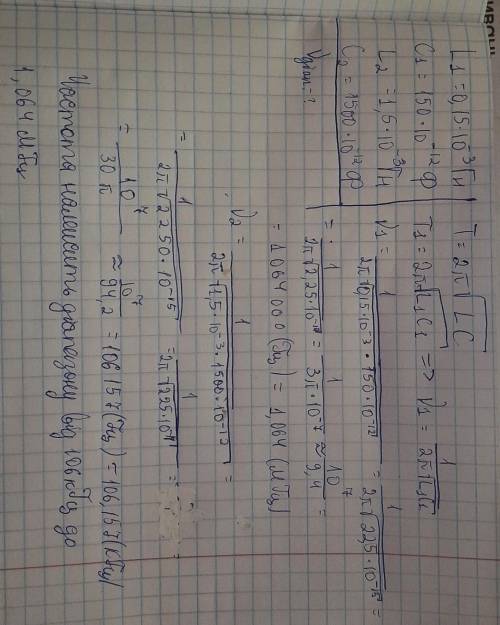 L₁ = 0,15·10⁻³ Гн
C₁ = 150·10⁻¹² Ф
L₂ = 1,5·10⁻³ Гн
C₂ = 1500·10⁻¹² Ф
T = 2π√LC
T₁ = 2π√L₁C₁ => ν₁ = 1/2π√L₁C₁
ν₁ = 1/2π√0,15·10⁻³·150·10⁻¹² = 1/2π√22,5·10⁻¹⁵ =
= 1/2π√2,25·10⁻¹⁴ = 1/3π·10⁻⁷ ≈ 10⁷/9,4 =
= 1064000 (Гц) = 1,064 (МГц)
ν₂ = 1/2π√1,5·10⁻³·1500·10⁻¹² =
= 1/2π√2250·10⁻¹⁵ = 1/2π√225·10⁻¹⁴ =
= 10⁷/30π ≈ 10⁷/94,2 = 106157 (Гц) = 106,157 (кГц)
Частота належить діапазону від 106 кГц до
1,064 МГц